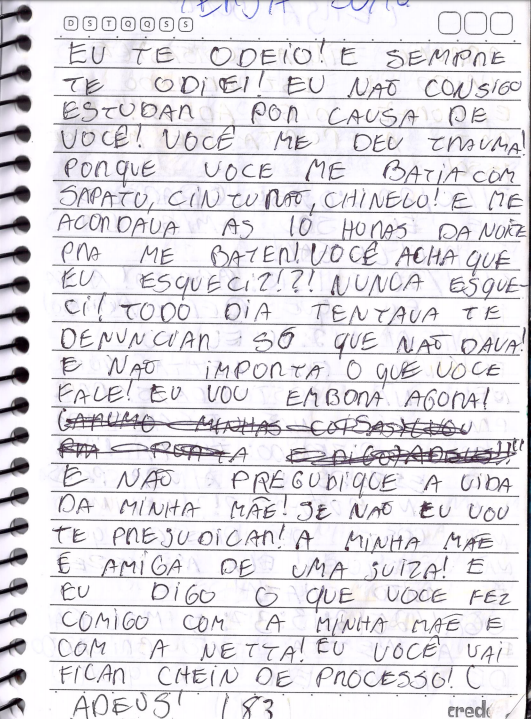 D S T Q Q S S
EU TE ODEIO! E SEMPRE
TE ODIEI! EU NAO CONSIGO
ESTUDAR POR CAUSA DE
VOCÊ! VOCÊ ME DEU TRAUMA!
PORQUE VOCE ME BATIA COM
SAPATU, CINTURÃO, CHINELO! E ME
ACORDAVA AS 10 HORAS DA NOITE
PRA ME BATER! VOCÊ ACHA QUE
EU ESQUECI?!?! NUNCA ESQUE-
CI! TODO DIA TENTAVA TE
DENUNCIAR SÓ QUE NÃO DAVA!
E NÃO IMPORTA O QUE VOCE
FALE! EU VOU EMBORA AGORA!
E NÃO PREGUDIQUE A VIDA
DA MINHA MÃE! SE NÃO EU VOU
TE PREJUDICAR! A MINHA MÃE
É AMIGA DE UMA JUIZA! E
EU DIGO O QUE VOCE FEZ
COMIGO COM A MINHA MÃE E
COM A NETTA! EU VOCÊ VAI
FICAR CHEIN DE PROCESSO! (
ADEUS! 183
credo